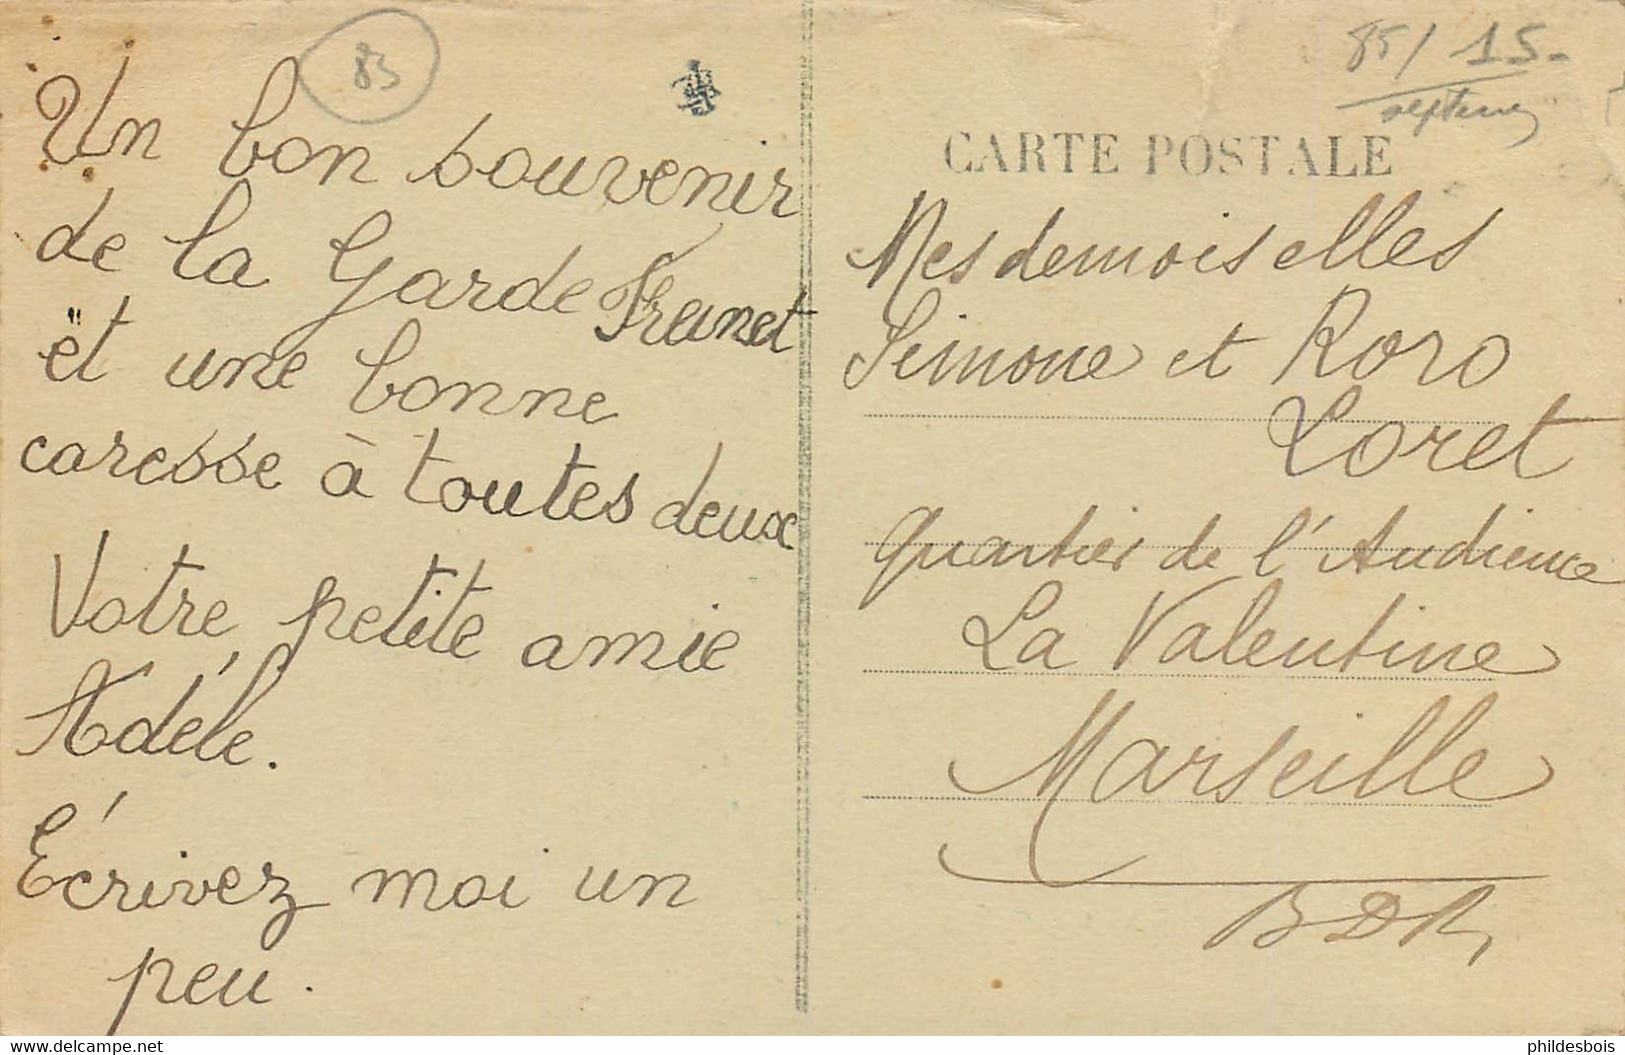 83
85/ 15-
CARTE POSTALE
Un bon souvenir
de la Garde Freinet
et une bonne
caresse à toutes deux
Votre petite amie
Adèle.
Écrivez moi un
peu.
Mesdemoiselles
Simone et Roro
Loret
quartier de l'Audience
La Valentine
Marseille
BDR
www.delcampe.net
phildesbois